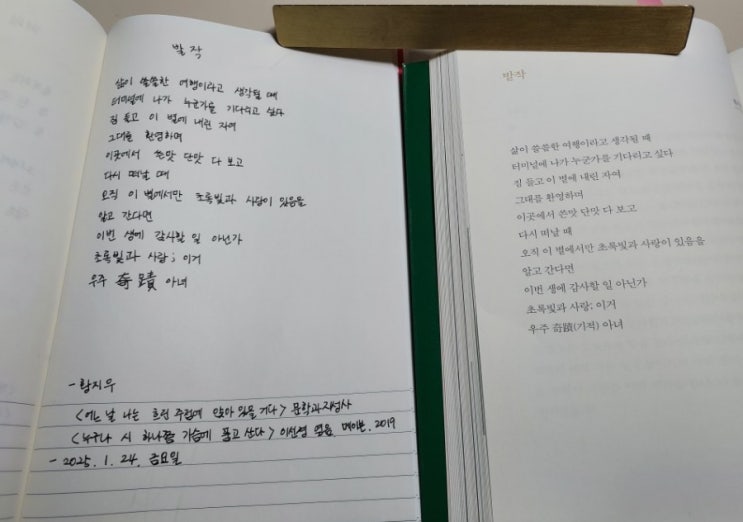 발작
삶이 쓸쓸한 여행이라고 생각될 때
터미널에 나가 누군가를 기다리고 싶다
짐 들고 이 별에 내린 자여
그대를 환영하며
이곳에서 쓴맛 단맛 다 보고
다시 떠날 때
오직 이 별에서만 초록빛과 사랑이 있음을
알고 간다면
이번 생에 감사할 일 아닌가
초록빛과 사랑; 이거
우주 奇蹟 아녀
-황지우
<어느 날 나는 흐린 주점에 앉아 있을 거다> 문학과지성사
<누구나 시 하나쯤 가슴에 품고 산다> 이선영 엮음, 메이븐, 2019
- 2025. 1. 24. 금요일
발작
삶이 쓸쓸한 여행이라고 생각될 때
터미널에 나가 누군가를 기다리고 싶다
짐 들고 이 별에 내린 자여
그대를 환영하며
이곳에서 쓴맛 단맛 다 보고
다시 떠날 때
오직 이 별에서만 초록빛과 사랑이 있음을
알고 간다면
이번 생에 감사할 일 아닌가
초록빛과 사랑; 이거
우주 奇蹟(기적) 아녀